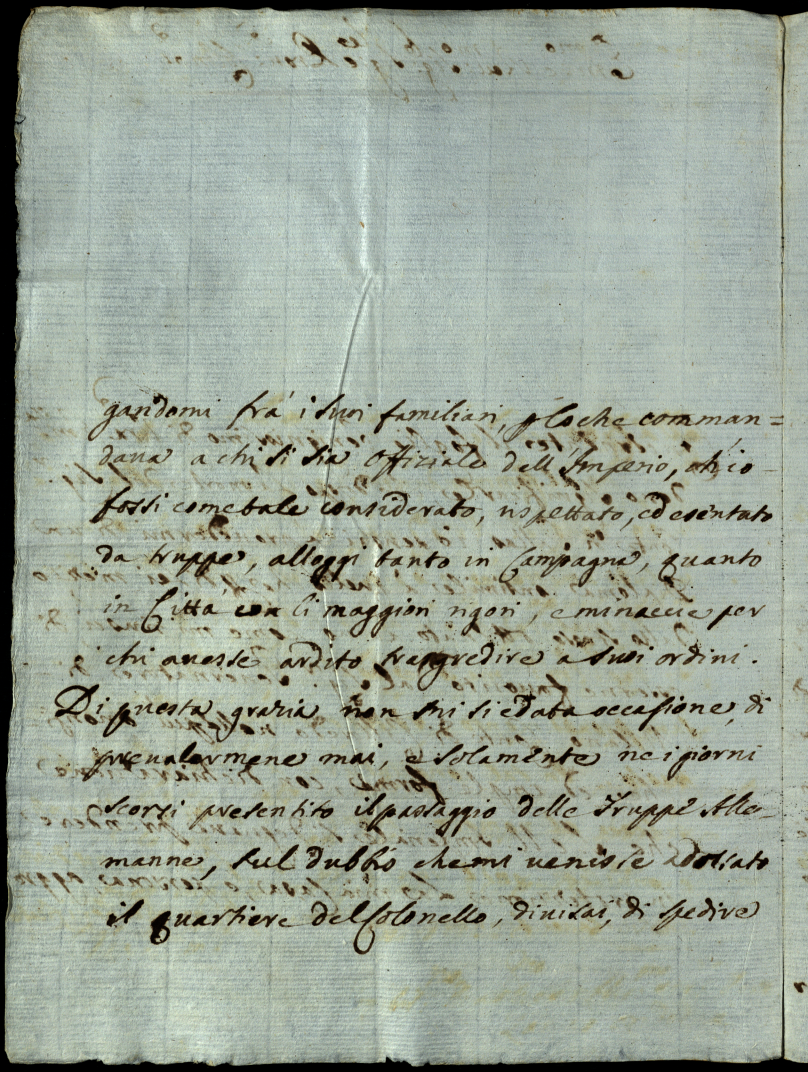 gandomi frà i suoi familiari, p loche comman=
dava a chi si sia Offiziale dell'Imperio, ch'io
fossi come tale considerato, rispettato, ed esentato
da truppe, alloggi tanto in Campagna, quanto
in Città con li maggiori rigori, e minaccie per
chi avesse ardito trasgredire a suoi ordini.
Di questa grazia non mi si è data occasione, di
prevalermene mai, e solamente ne i giorni
scorsi presentito il passaggio delle Truppe Ale-
manne, sul dubbio che mi venisse adossato
il quartiere del Colonello, divisai, di spedire